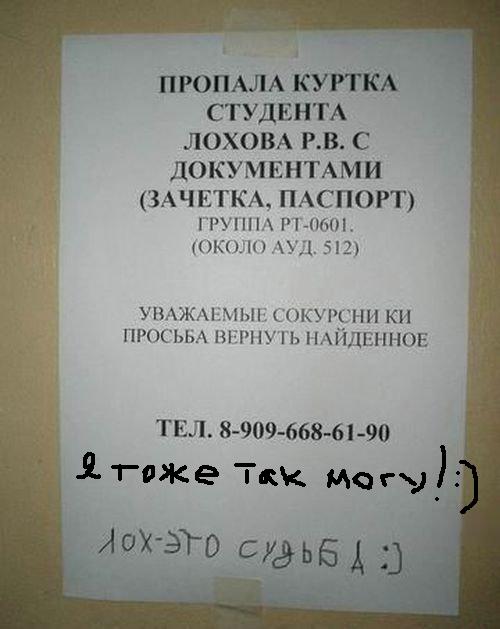 ПРОПАЛА КУРТКА
СТУДЕНТА
ЛОХОВА Р.В. С
ДОКУМЕНТАМИ
(ЗАЧЕТКА, ПАСПОРТ)
ГРУППА РТ-0601.
(ОКОЛО АУД. 512)
УВАЖАЕМЫЕ СОКУРСНИ КИ
ПРОСЬБА ВЕРНУТЬ НАЙДЕННОЕ
ТЕЛ. 8-909-668-61-90
Я тоже так могу!:)
ЛОХ-ЭТО СУДЬБА :)